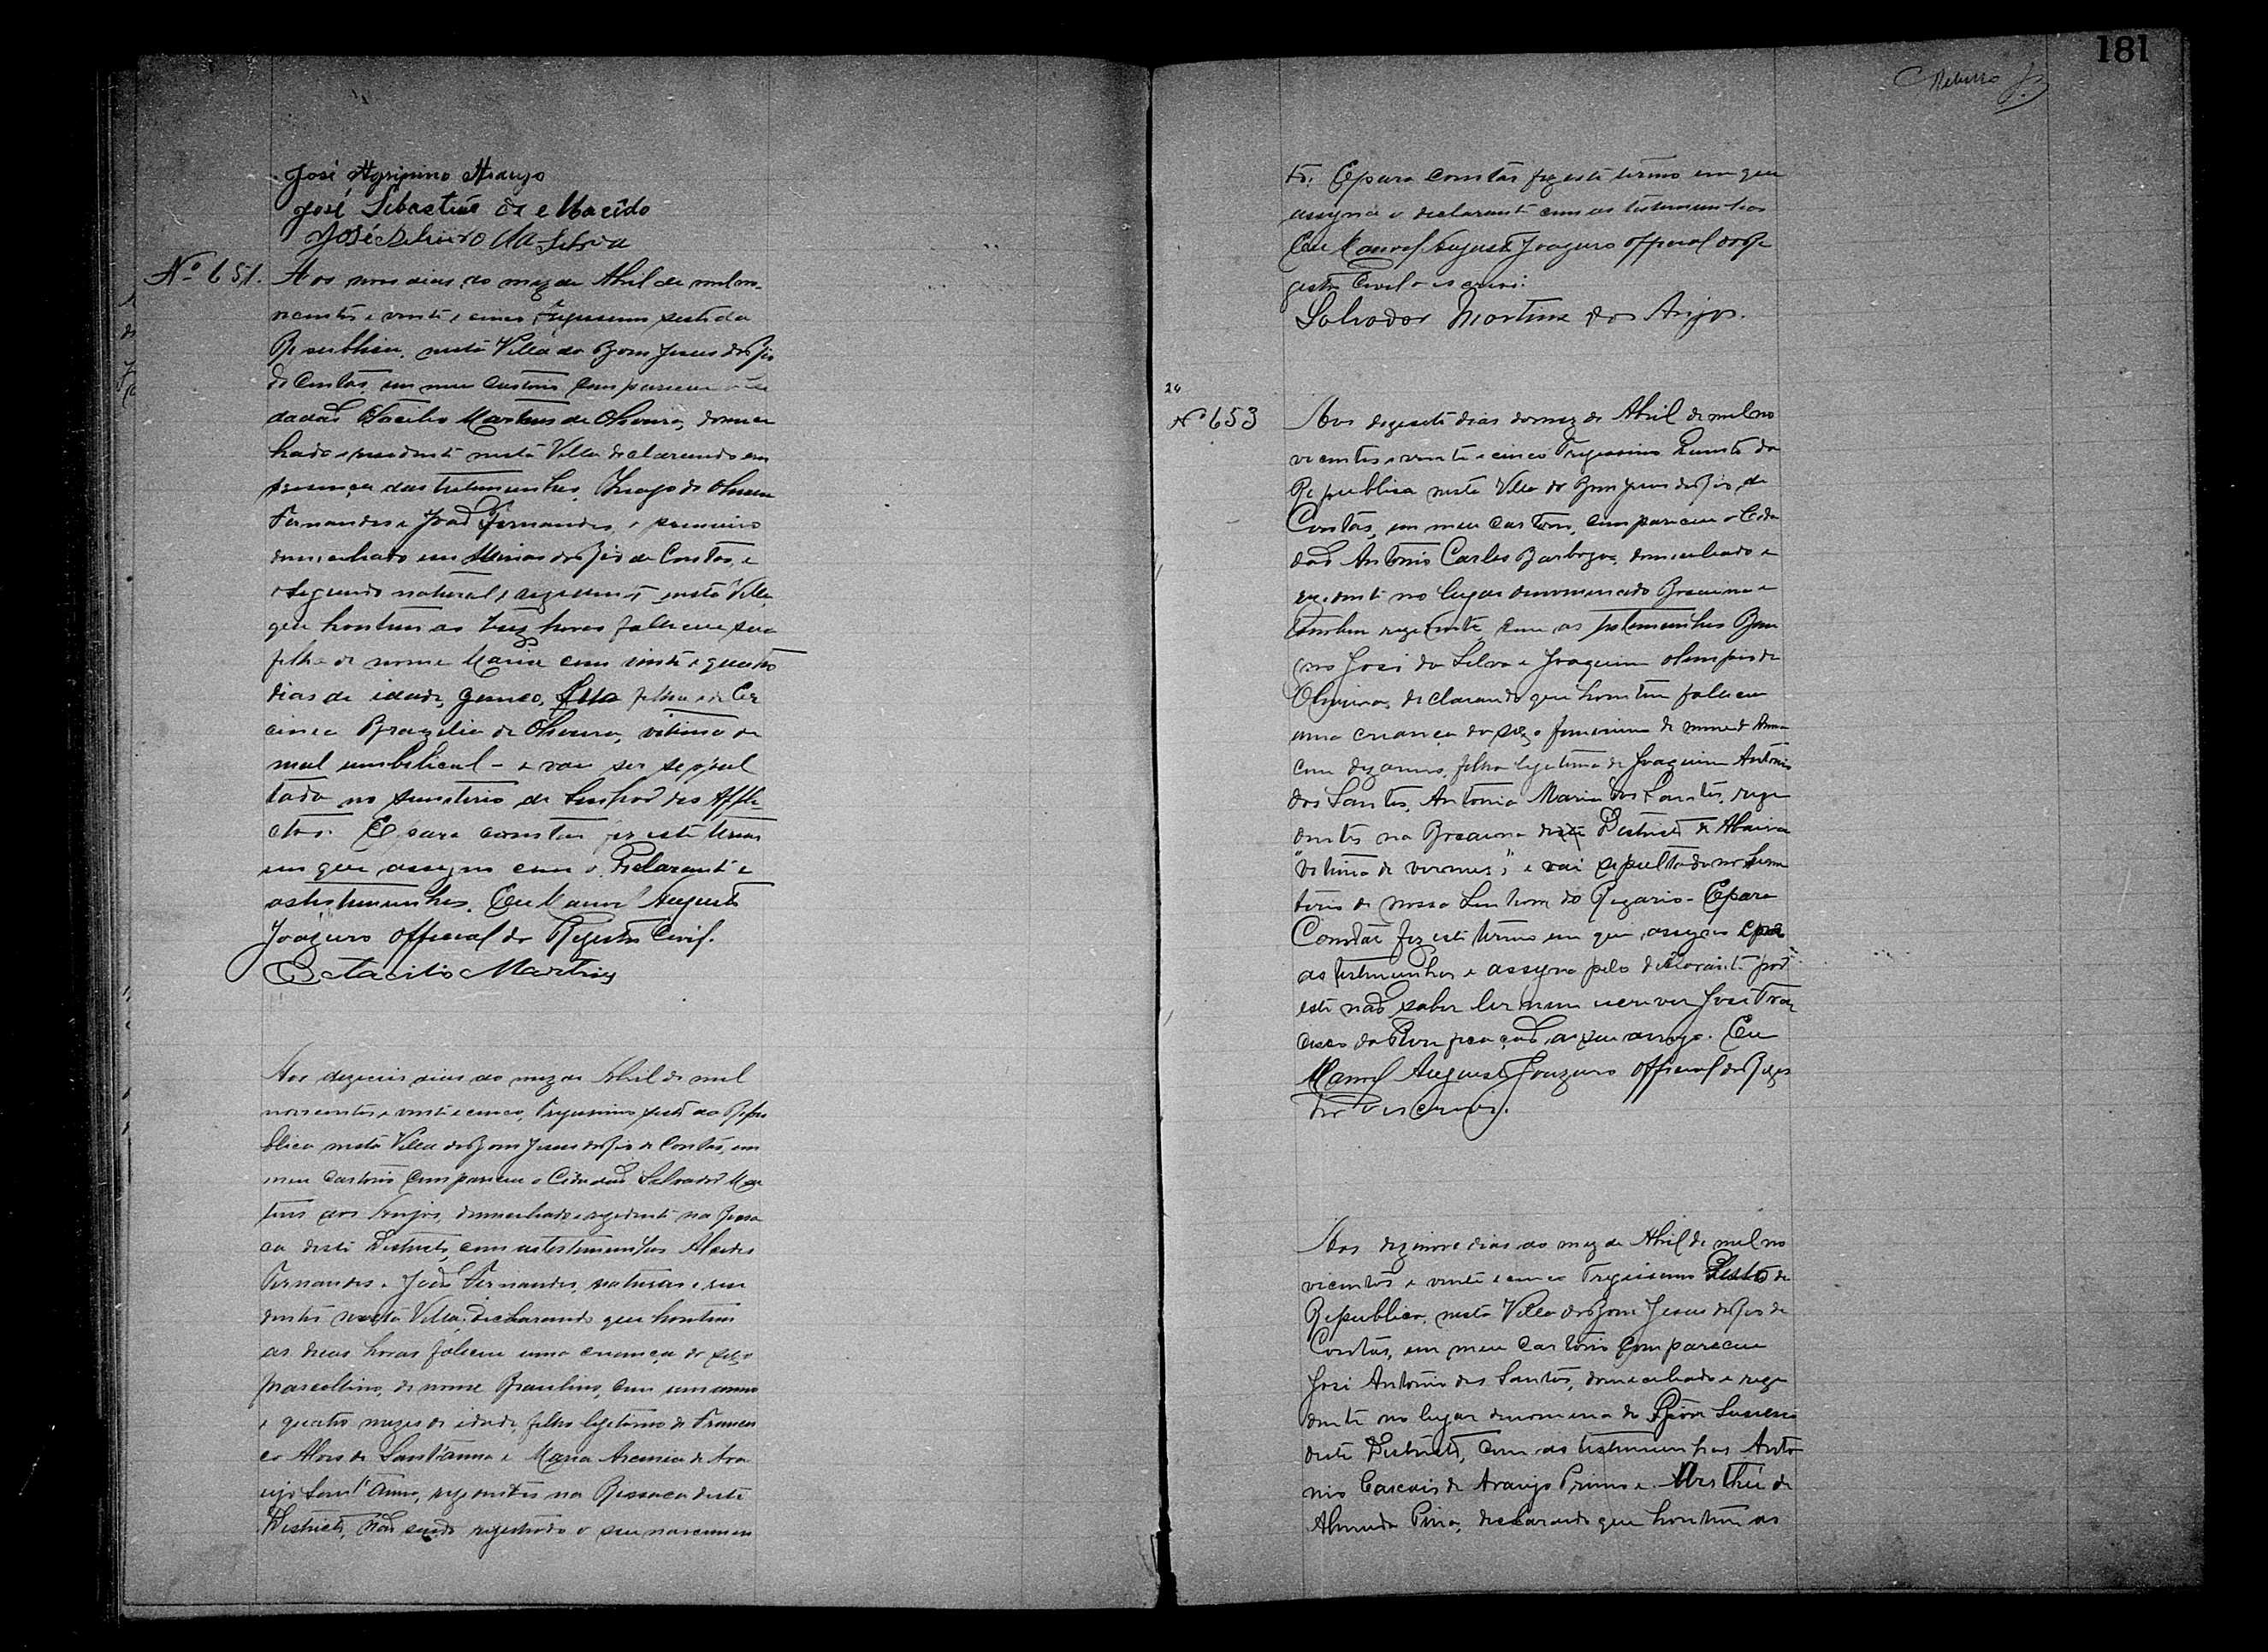 181
José Agripino Araujo
José Sebastião de Macêdo
José Ribeiro da Silva
Nº 651. Aos nove dias do mez de Abril de mil no-
vecentos e vinte e cinco Trigesimo sexto da
Republica, nesta Villa do Bom Jesus do Rio
de Contas, em meu cartorio compareceu o Ci
dadão Otacilio Martins de Oliveira, domici
liado e residente nesta Villa declarando em
presença das testemunhas, Thiago de Oliveira
Fernandes e João Fernandes, o primeiro
domiciliado em Minas do Rio de Contas, e
o segundo natural e rezidente nesta Villa,
que hontem as trez horas falleceu sua
filha de nome Maria com vinte e quatro
dias de idade,
cinea Brazilia de Oliveira, vitima de
mal umbilical - e vae ser sepul
tada no semiterio de Senhor dos Affli
ctos. E para constar fiz este termo
em que assigno com o Declarante e
as testemunhas. Eu Manoel Augusto
Joazeiro official do Registro Civil.
Octacilio Martins
Aos dezeseis dias do mez de Abril de mil
novecentos e vinte e cinco, Trigesimo sexto da Repu
blica nesta Villa do Bom Jesus do Rio de Contas, em
meu cartorio compareceu o Cidadão Salvador Mar
tins dos Anjos, domiciliado e rezidente na Ressa
ca deste Districto, com as testemunhas Alcides
Fernandes e João Fernandes, naturaes e resi
dentes nesta Villa; Declarando que hontem
as duas horas faleceu uma creança do sexo
mascollino, de nome Braulino, com um anno
e quatro mezes de idade, filho legitimo de Francis
co Alves de Sant'anna e Maria Arcenia de Ara
ujo Sant'Anna, rezidentes na Ressaca deste
Districto, não sendo registrado o seu nascimen
to: E para constar fiz este termo em que
assigna o declarante com as testemunhas
Eu Manoel Augusto Joazeiro official do Re
gistro Civil o escrevi.
Salvador Martins dos Anjos.
Nº 653 Aos dezesete dias do mez de Abril de mil no
vecentos e vinte e cinco Trigesimo Quinto da
Republica nesta Villa do Bom Jesus do Rio de
Contas, em meu cartorio, compareceu o Cida
dão Antonio Carlos Barboza, domiciliado e
rezidente no lugar denominado Brauna e
tambem rezidente, com as testemunhas
José da Silva e Joaquim Olimpio de
Oliveira, declarando que hontem faleceu
uma creança do sexo feminino de nome Anna
com dez annos, filha legitima de Joaquim Antonio
dos Santos, Antonia Maria dos Santos, rezi
dentes na Brauna deste Districto de Abaira
"Vitima de vermes", e vai sepultada no Semi
terio de Nossa Senhora do Rozario - E para
Constar fiz este termo em que assigno com
as testemunhas e assigna pelo declarante por
este não saber ler nem escrever José Fran
cisco da Purificação, a seu arrogo. Eu
Manoel Augusto Joazeiro official do Regis
tro o escrevi.
Aos dezenove dias do mez de Abril de mil no
vecentos e vinte e cinco Trigesimo Sexto da
Republica, nesta Villa do Bom Jesus do Rio de
Contas, em meu Cartorio compareceu
José Antonio dos Santos, domiciliado e rezi
dente no lugar denominado
deste Districto, com as testemunhas Anto
nio Cascais de Araujo Primo e de
Almeida Pina, declarando que hontem as